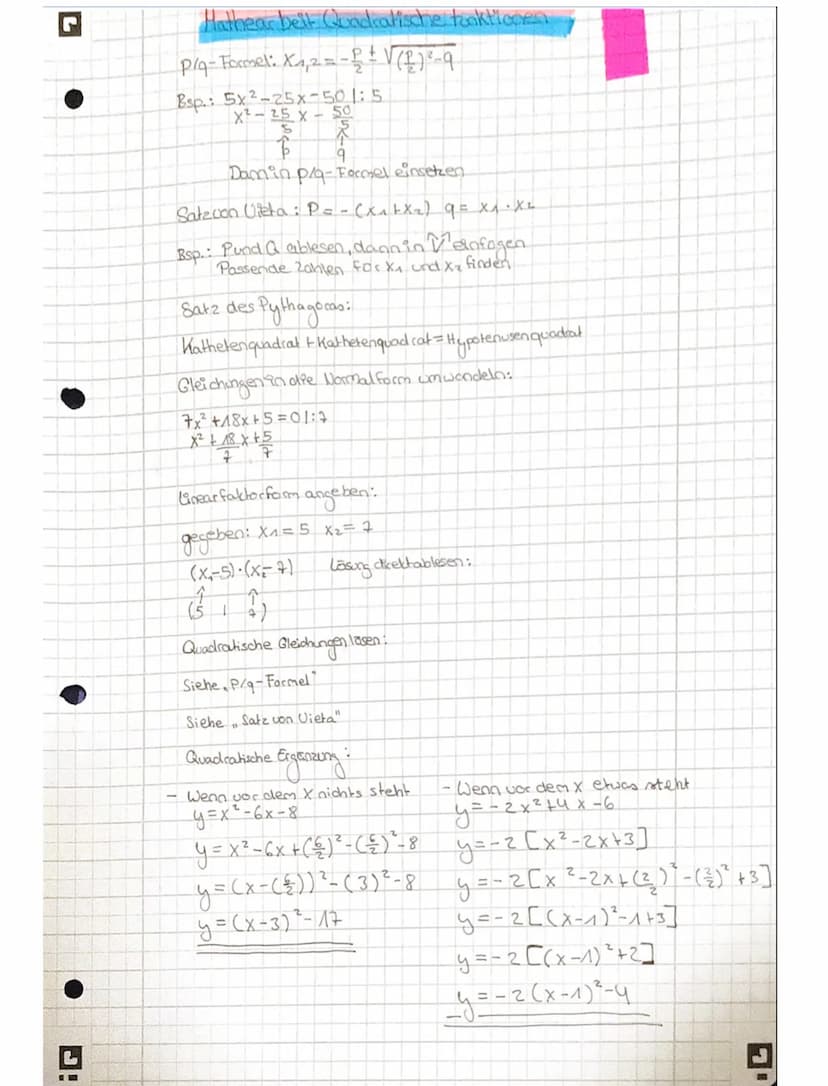 Mathearbeit Quadratische funktionen
P/q-Formel: x1,2 = -p/2 ± √((p/2)²-q)
Bsp.: 5x²-25x-50 |:5
x² - 25/5 x - 50/5
↑ ↑
p q
Dann in p/q-Formel einsetzen
Satz von Vieta: P = -(x1+x2) q = x1·x2
Bsp.: P und Q ablesen, dann in "V" einfügen
Passende Zahlen für x1 und x2 finden
Satz des Pythagoras:
Kathetenquadrat + Kathetenquadrat = Hypotenusenquadrat
Gleichungen in die Normalform umwandeln:
7x²+18x+5=0 |:7
x² + 18/7 x + 5/7
Linearfaktorform angeben:
gegeben: x1=5 x2=7
(x1-5)·(x2-7) Lösung direkt ablesen:
↑ ↑
(5 | 7)
Quadratische Gleichungen lösen:
Siehe „P/q-Formel"
Siehe „Satz von Vieta"
Quadratische Ergänzung:
- Wenn vor dem x nichts steht
y=x²-6x-8
y=x²-6x+(6/2)²-(6/2)²-8
y=(x-(6/2))²-(3)²-8
y=(x-3)²-17
- Wenn vor dem x etwas steht
y=-2x²+4x-6
y=-2[x²-2x+3]
y=-2[x²-2x+(2/2)²-(2/2)²+3]
y=-2[(x-1)²-1+3]
y=-2[(x-1)²+2]
y=-2(x-1)²-4